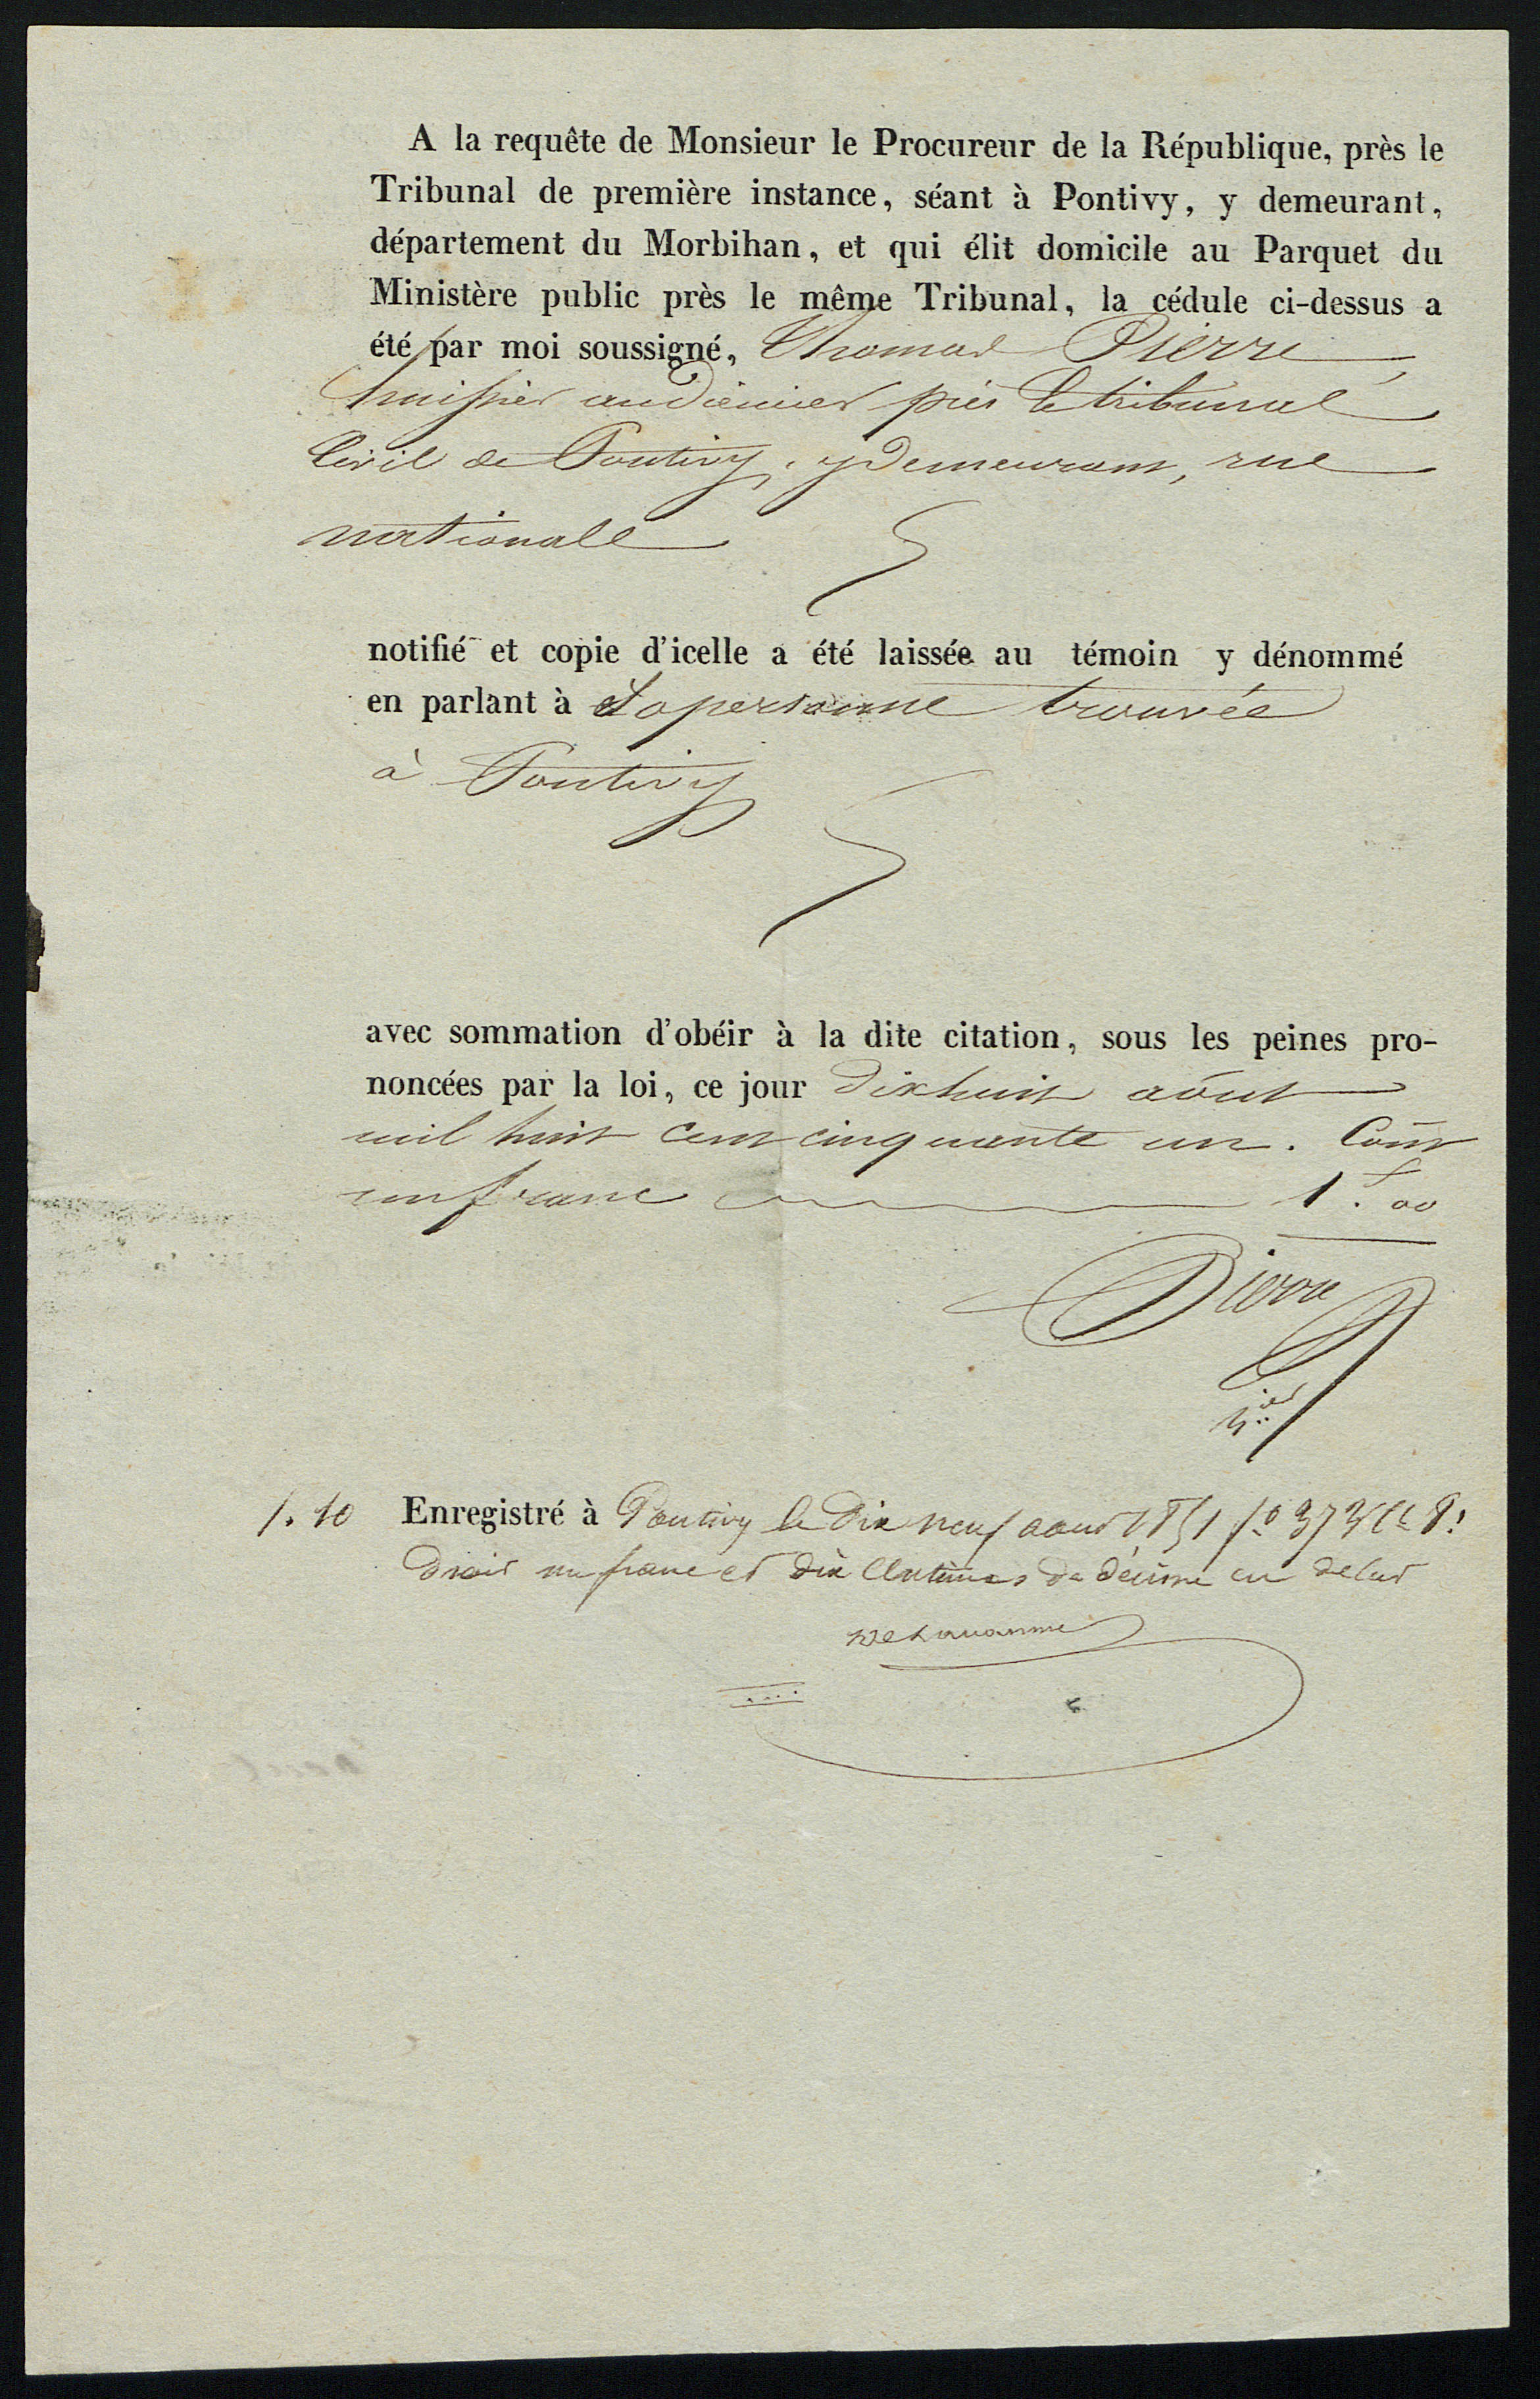 A la requête de Monsieur le Procureur de la République, près le
Tribunal de première instance, séant à Pontivy, y demeurant,
département du Morbihan, et qui élit domicile au Parquet du
Ministère public près le même Tribunal, la cédule ci-dessus a
été par moi soussigné, Thomas Pierre,
huissier audiencier près le tribunal
Civil de Pontivy, y demeurant, rue
nationale
notifié et copie d'icelle a été laissée au témoin y dénommé
en parlant à Sa personne trouvée
à Pontivy
avec sommation d'obéir à la dite citation, sous les peines pro-
noncées par la loi, ce jour dixhuit août
mil huit cent cinquante un. Coût
un franc 1f.00
Pierre
h.ier
1.10 Enregistré à Pontivy le dix neuf aout 1851 fo 373
droit un franc et dix Centimes de décime en debet